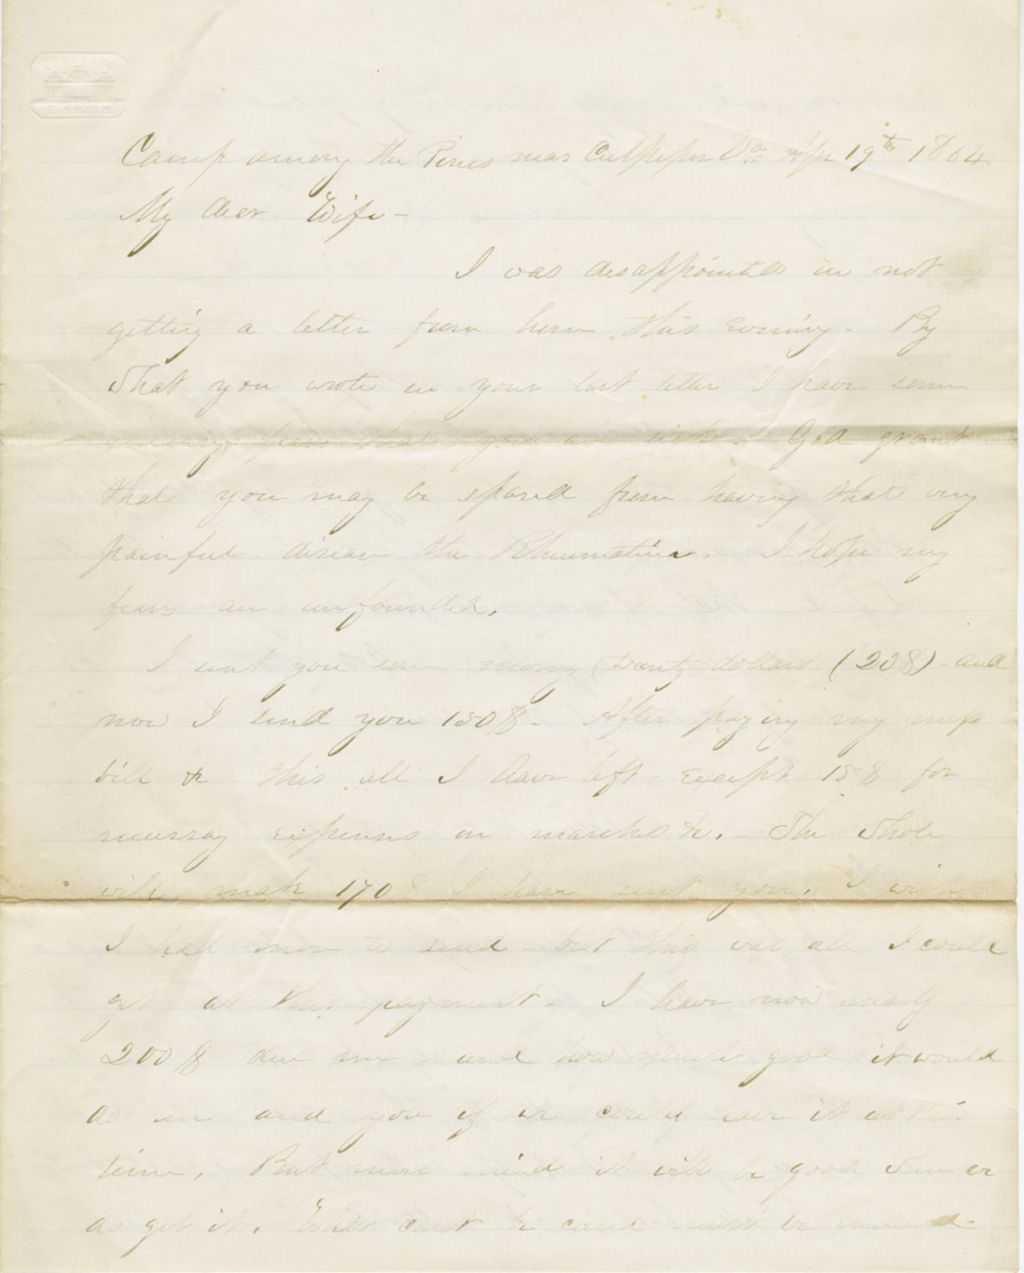 Camp among the Pines near Culpeper Va Apr 19th 1864
My dear Wife -
I was disappointed in not
getting a letter from home this evening - By
what you wrote in your last letter I have some
fears that you are sick - God grant
that you may be spared from having that very
painful disease the Rheumatism. I hope my
fears are unfounded.
I sent you some money (twenty dollars (20$) and
now I send you 150$ - After paying my mess
bill & this all I have left - Except 15$ for
necessary expenses on marches &c. The whole
will make 170$ I have sent you. I wish
I had more to send - but this was all I could
get at this payment - I have now nearly
200$ due me - and how much good it would
do me and you if we could have it at this
time. But never mind it will be good when we
do get it. What cant be cured must be endured -